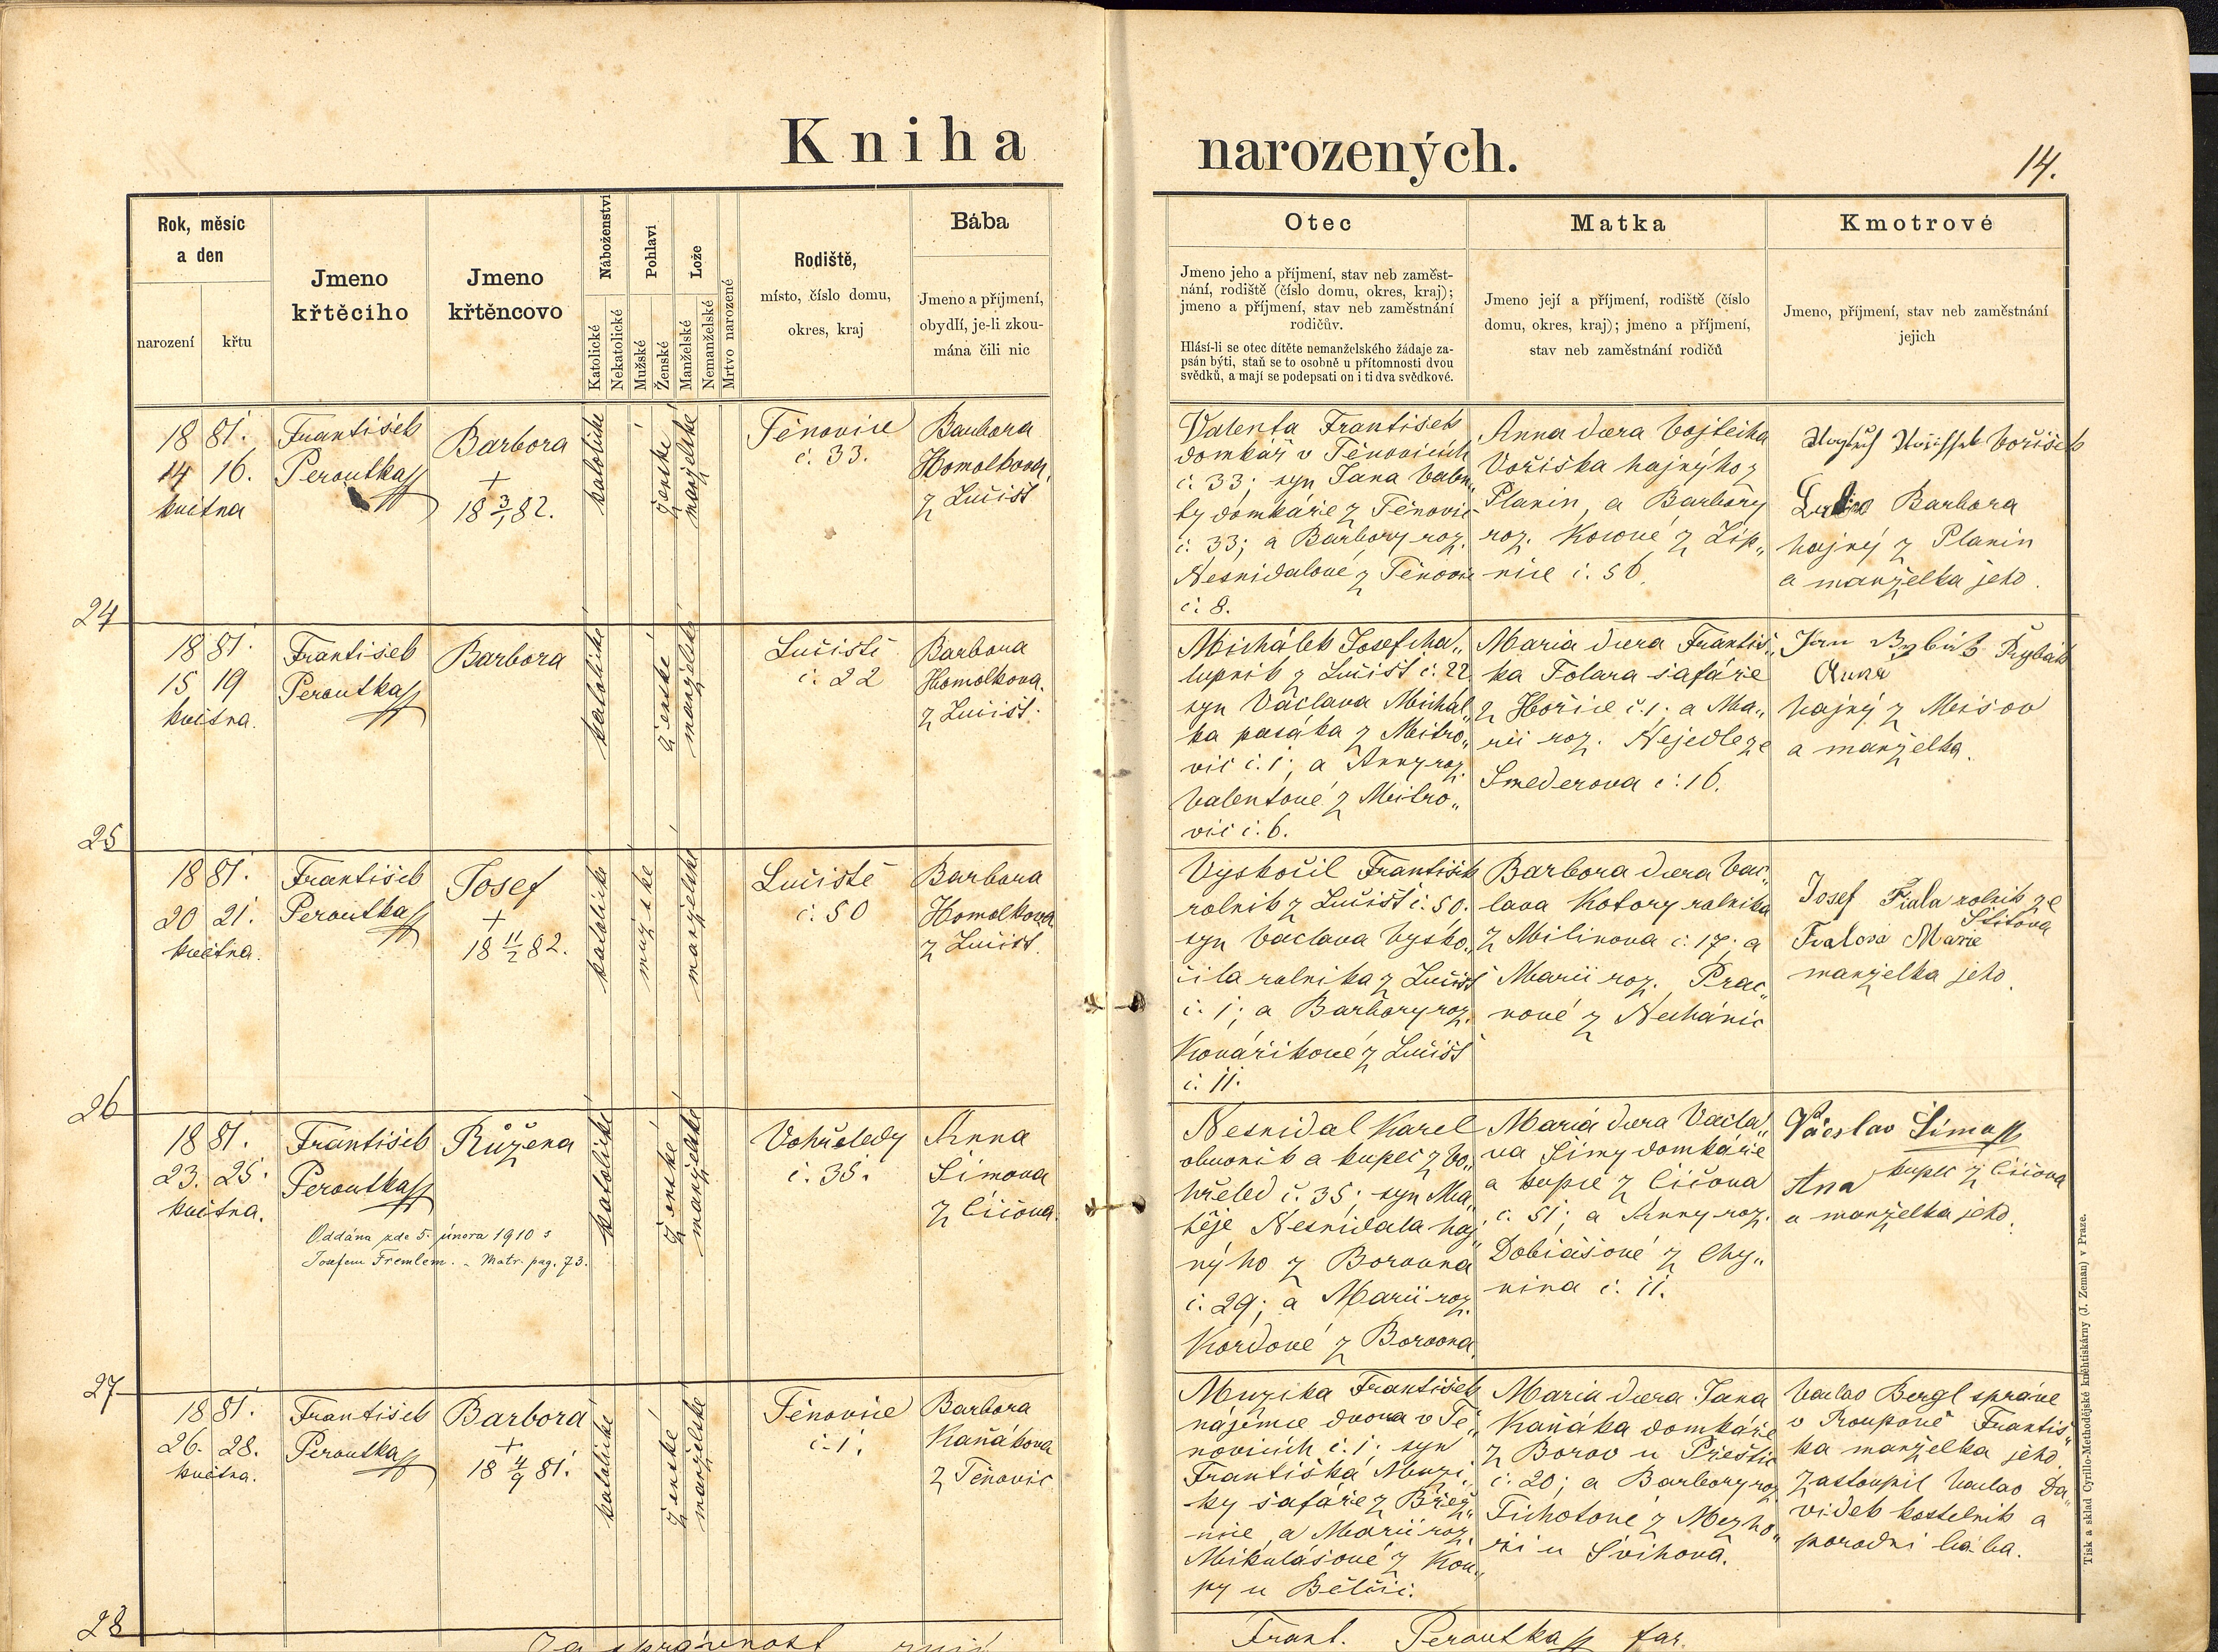 Kniha narozených.
14.
Rok, měsíc
a den
narození
křtu
Jmeno
křtěcího
Jmeno
křtěncovo
Náboženství
Katolické
Nekatolické
Pohlaví
Mužské
Ženské
Lože
Manželské
Nemanželské
Mrtvo narozené
Rodiště,
místo, číslo domu,
okres, kraj
Bába
Jmeno a příjmení,
obydlí, je-li zkou-
mána čili nic
Otec
Jmeno jeho a příjmení, stav neb zaměst-
nání, rodiště (číslo domu, okres, kraj);
jmeno a příjmení, stav neb zaměstnání
rodičův.
Hlásí-li se otec dítěte nemanželského žádaje za-
psán býti, staň se to osobně u přítomnosti dvou
svědků, a mají se podepsati on i ti dva svědkové.
Matka
Jmeno její a příjmení, rodiště (číslo
domu, okres, kraj); jmeno a příjmení,
stav neb zaměstnání rodičů
Kmotrové
Jmeno, příjmení, stav neb zaměstnání
jejich
1881.
14 16.
května
František
Peroutka
Barbora
+
18 3/1 82.
katolické
ženské
manželské
Těnovice
č. 33.
Barbora
Homolkova
z Lučišť
Valenta František
domkář v Těnovicích
č. 33; syn Jana Valen„
ty domkáře z Těnovic
č. 33; a Barbory roz.
Nesnídalové z Těnovic
č. 8.
Anna dcera Vojtěcha
Voříška hajného z
Planin, a Barbory
roz. Kocové z Lip„
nice č. 56.
Voříšek
Barbora
hajný z Planin
a manželka jeho.
24
1881.
15 19
května.
František
Peroutka
Barbora
katolické
ženské
manželské
Lučiště
č. 22
Barbora
Homolkova.
z Lučišť.
Michálek Josef cha„
lupník z Lučišť č. 22
syn Václava Michál„
ka pasáka z Mitro„
vic č. 1; a Anny roz.
Valentové z Mitro„
vic č. 6.
Maria dcera Františ„
ka Tolara šafáře
z Hořic č. 1; a Ma„
rii roz. Nejedle ze
Smederova č. 16.
Jan Rybák
Anna
hajný z Míšov
a manželka.
25
1881.
20 21.
května.
František
Peroutka
Josef
+
18 11/2 82.
katolické
mužské
manželské
Lučiště
č. 50
Barbora
Homolkova
z Lučišť.
Vyskočil František
rolník z Lučišť č. 50.
syn Václava Vysko„
čila rolníka z Lučišť
č. 1; a Barbory roz.
Kovaříkové z Lučišť
č. 11.
Barbora dcera Vác„
lava Kotory rolníka
z Milinova č. 17; a
Marii roz. Prac„
nové z Nechánic
Josef Fiala rolník ze
Štítova
Fialova Marie
manželka jeho.
26
1881.
23. 25.
května.
František
Peroutka
Růžena
Oddána zde 5. února 1910 s
Josefem Fremlem. - Matr. pag. 73.
katolické
ženské
manželské
Vohřeledy
č. 35.
Anna
Šimova
z Čičova.
Nesnídal Karel
obuvník a kupec z Vo„
hřeled č. 35; syn Ma„
těje Nesnídala haj„
ného z Borovna
č. 29; a Marii roz.
Kordové z Borovna.
Maria dcera Václa„
va Šimy domkáře
a kupce z Čičova
č. 51; a Anny roz.
Dobiášové z Chy„
nina č. 11.
Václav Šíma
kupec z Čičova
Ana
a manželka jeho.
27
1881.
26. 28.
května.
František
Peroutka
Barbora
+
18 4/9 81.
katolické
ženské
manželské
Těnovice
č. 1.
Barbora
Kaňákova
z Těnovic
Muzika František
nájemce dvora v Tě„
novicích č. 1; syn
Františka Muzi„
ky šafáře z Břez„
nice, a Marii roz.
Mikulášové z Kou„
py u Bělčic.
Maria dcera Jana
Kaňáka domkáře
z Borov u Přeštic
č. 20; a Barbory roz.
Tichotové z Mezho„
ří u Švihova.
Václav Bergl správce
v Roupově Františ„
ka manželka jeho.
zastoupil Václav Da„
vídek kostelník a
porodní bába.
28
Za správnost
Frant. Peroutka far.
Tisk a sklad Cyrillo-Methodějské knihtiskárny (J. Zeman) v Praze.